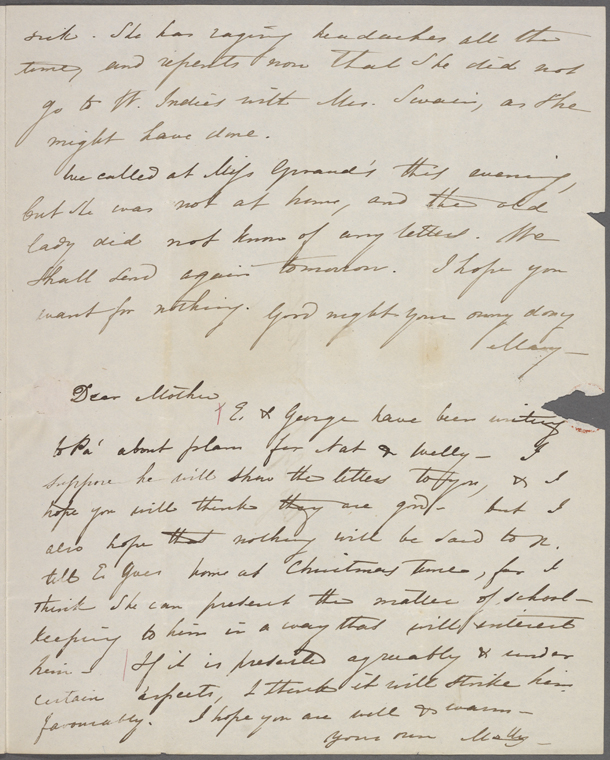 sick. She has raging headaches all the
time, and repents now that She did not
go to W. Indies with Mrs. Swain, as she
might have done.
We called at Miss Gerand's this evening,
but she was not at home, and the old
lady did not know of any letters. We
shall send again tomorrow. I hope you
want for nothing. Good night your own
Mary—
Dear Mother
E. & George have been writing
to Pa' about plans for Nat & Welly— I
suppose he will show the letters to you, & I
hope you will think they are good— but I
also hope that nothing will be said to N.
till E. goes home at Christmas time, for I
think She can present the matter of school-
keeping to him in a way that will interest
him— If it is presented agreeably & under
certain aspects, I think it will strike him
favourably. I hope you are well & warm—
Your own